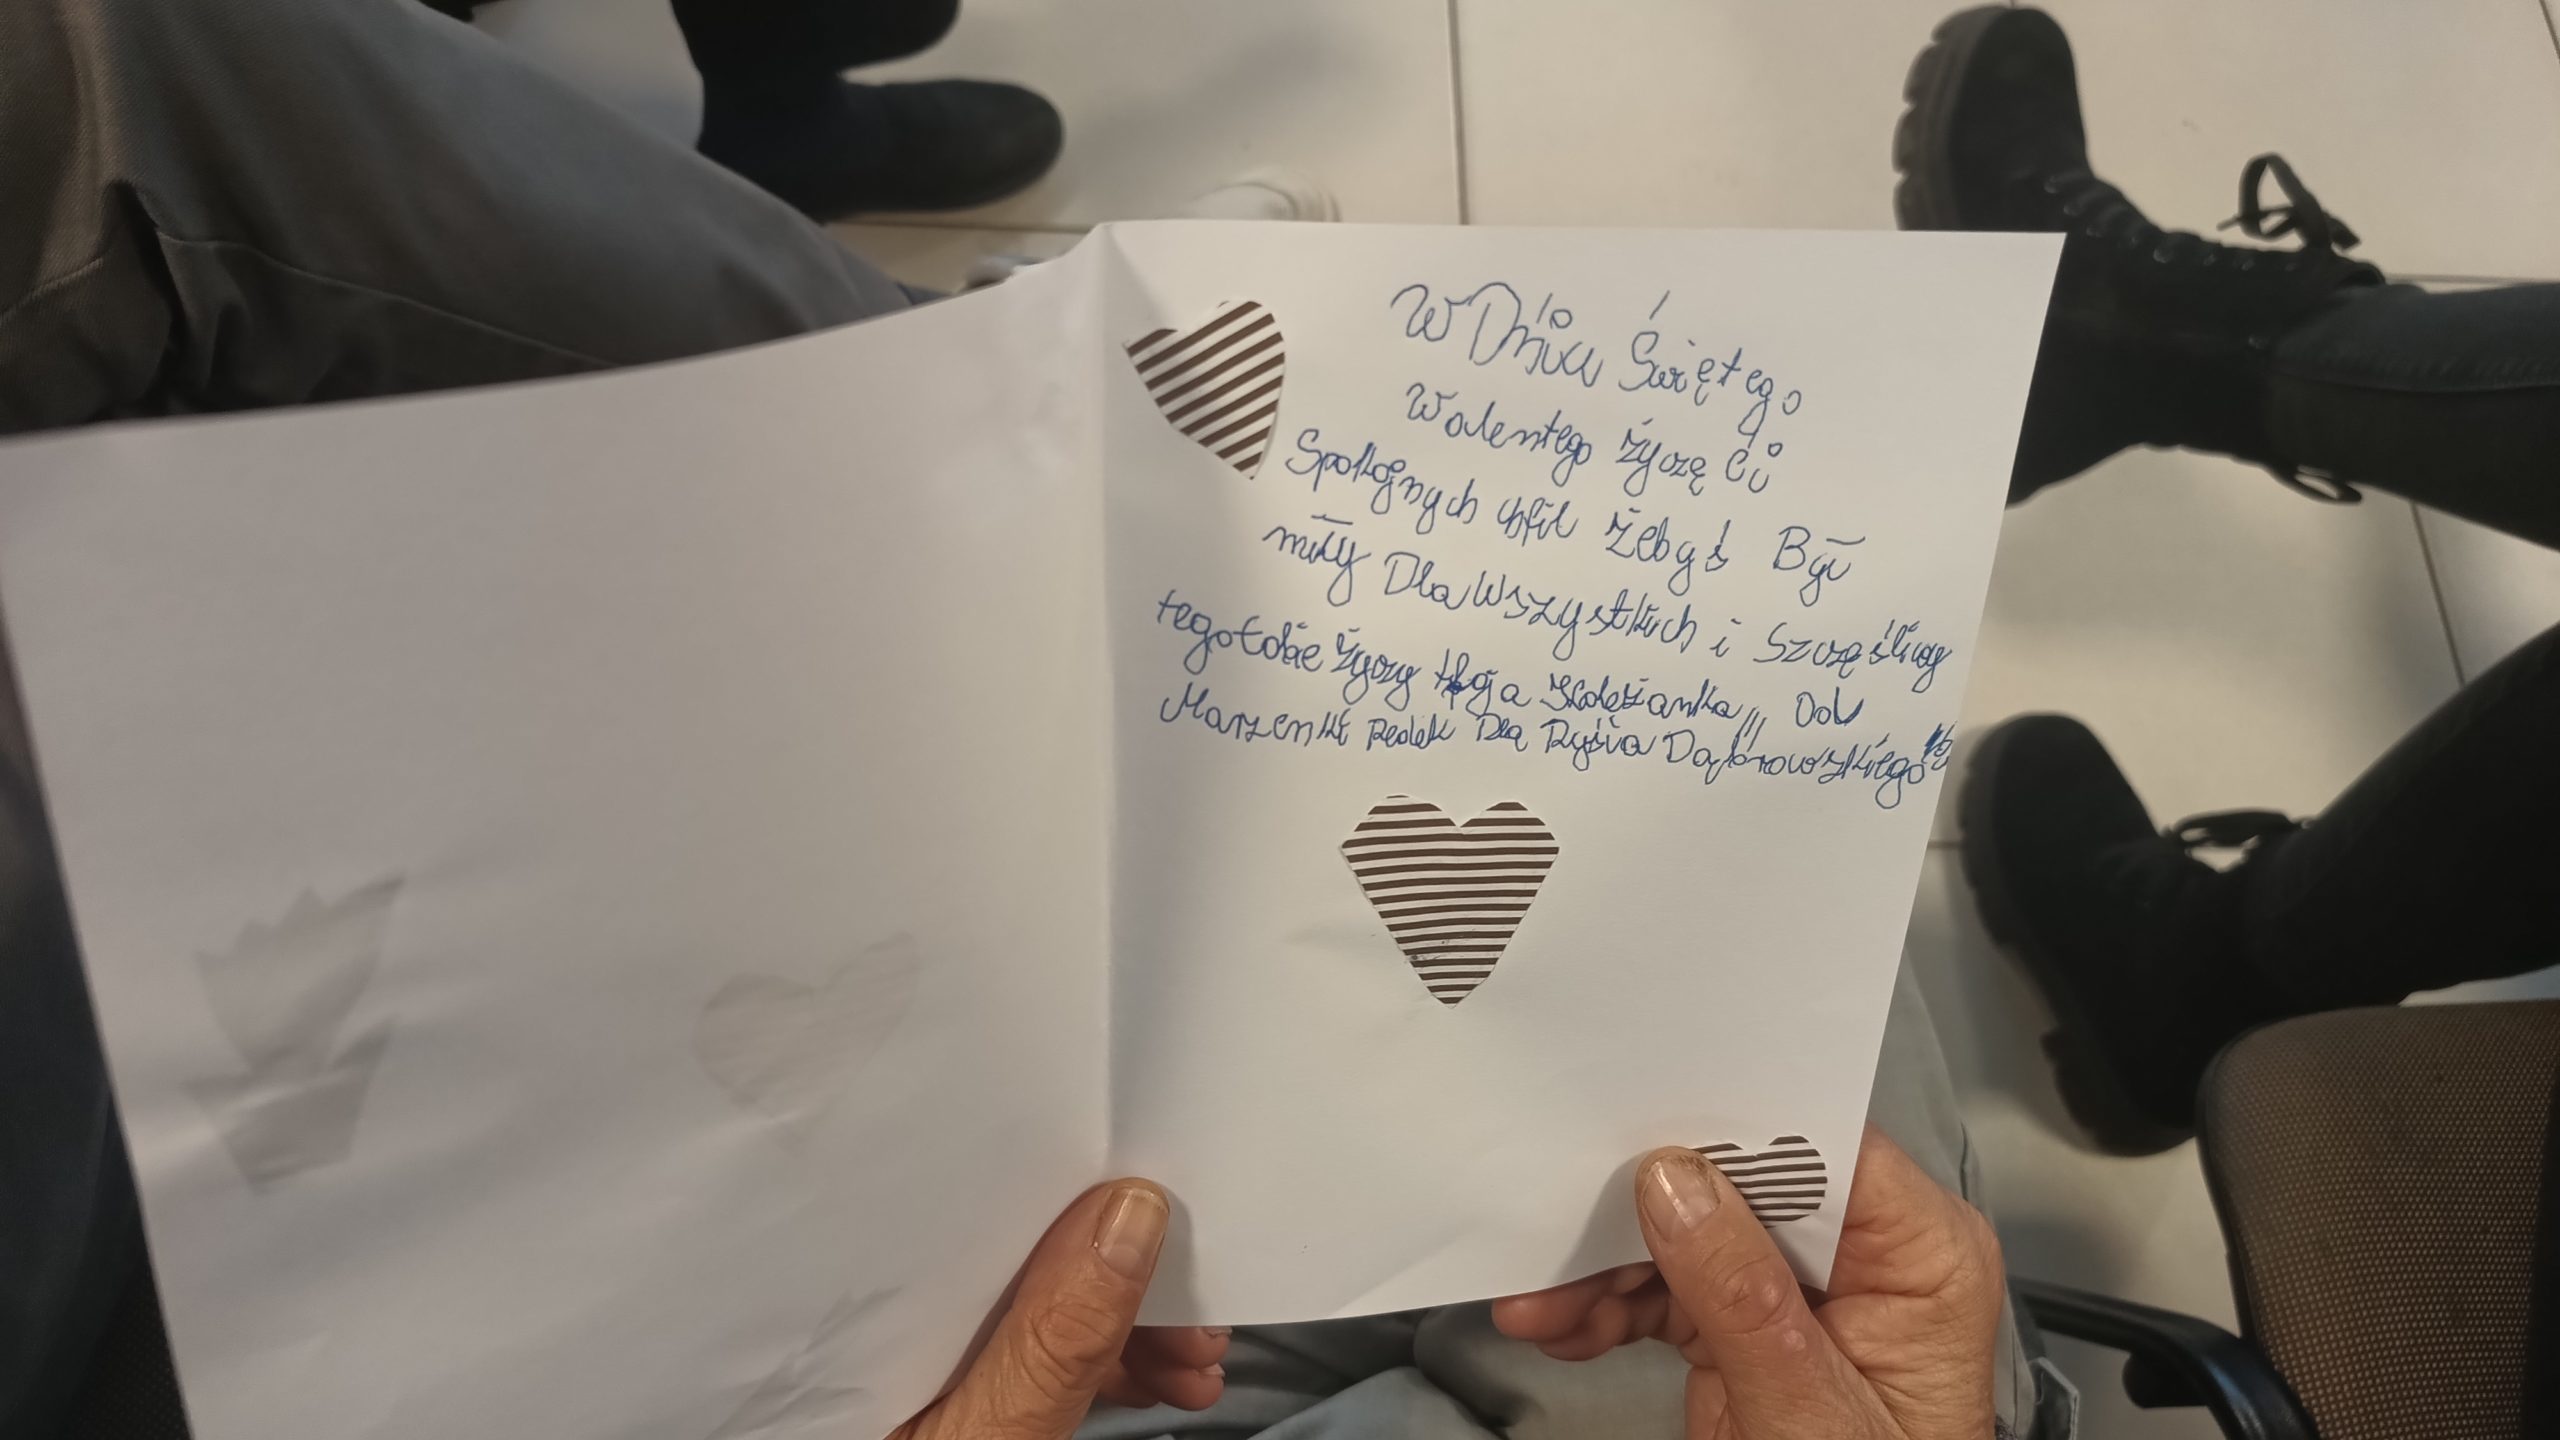 W Dniu Świętego
Walentego życzę Ci
Spokojnych chfil żebyś Był
miły Dla Wszystkich i Szczęśliwy
tego tobie życzy tfoja koleżanka,, Od
Marzenki Dla Rysia Dąbrowskiego"